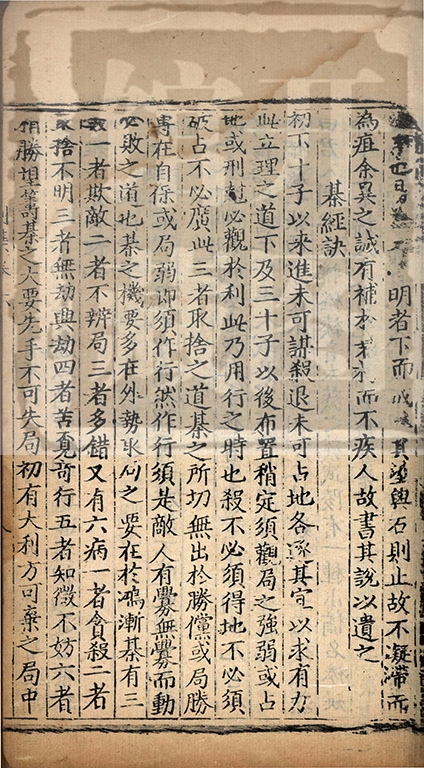 明者下而成 其遊與否則止故不凝滯而
為疽余異之誠有補於 而不疾人故書其說以遺之
棊經訣
初下十子以來進未可謀殺退未可占地各逐其宜以求有力
此立理之道下及三十子以後布置稍定須觀局之強弱或占
地或刑尅必觀於利此乃用行之時也殺不必須得地不必須
破占不必廣此三者取捨之道棊之所切無出於勝儻或局勝
專在自保或局弱即須作行然作行須是敵人有釁無釁而動
必敗之道也棊之機要多在外勢取局之要在於鴻漸棊有三
敗一者欺敵二者不辨局三者多錯又有六病一者貪殺二者
取捨不明三者無劫興劫四者苦覓奇行五者知微不妨六者
勝 棊之人要先手不可失局初有大利方可棄之局中